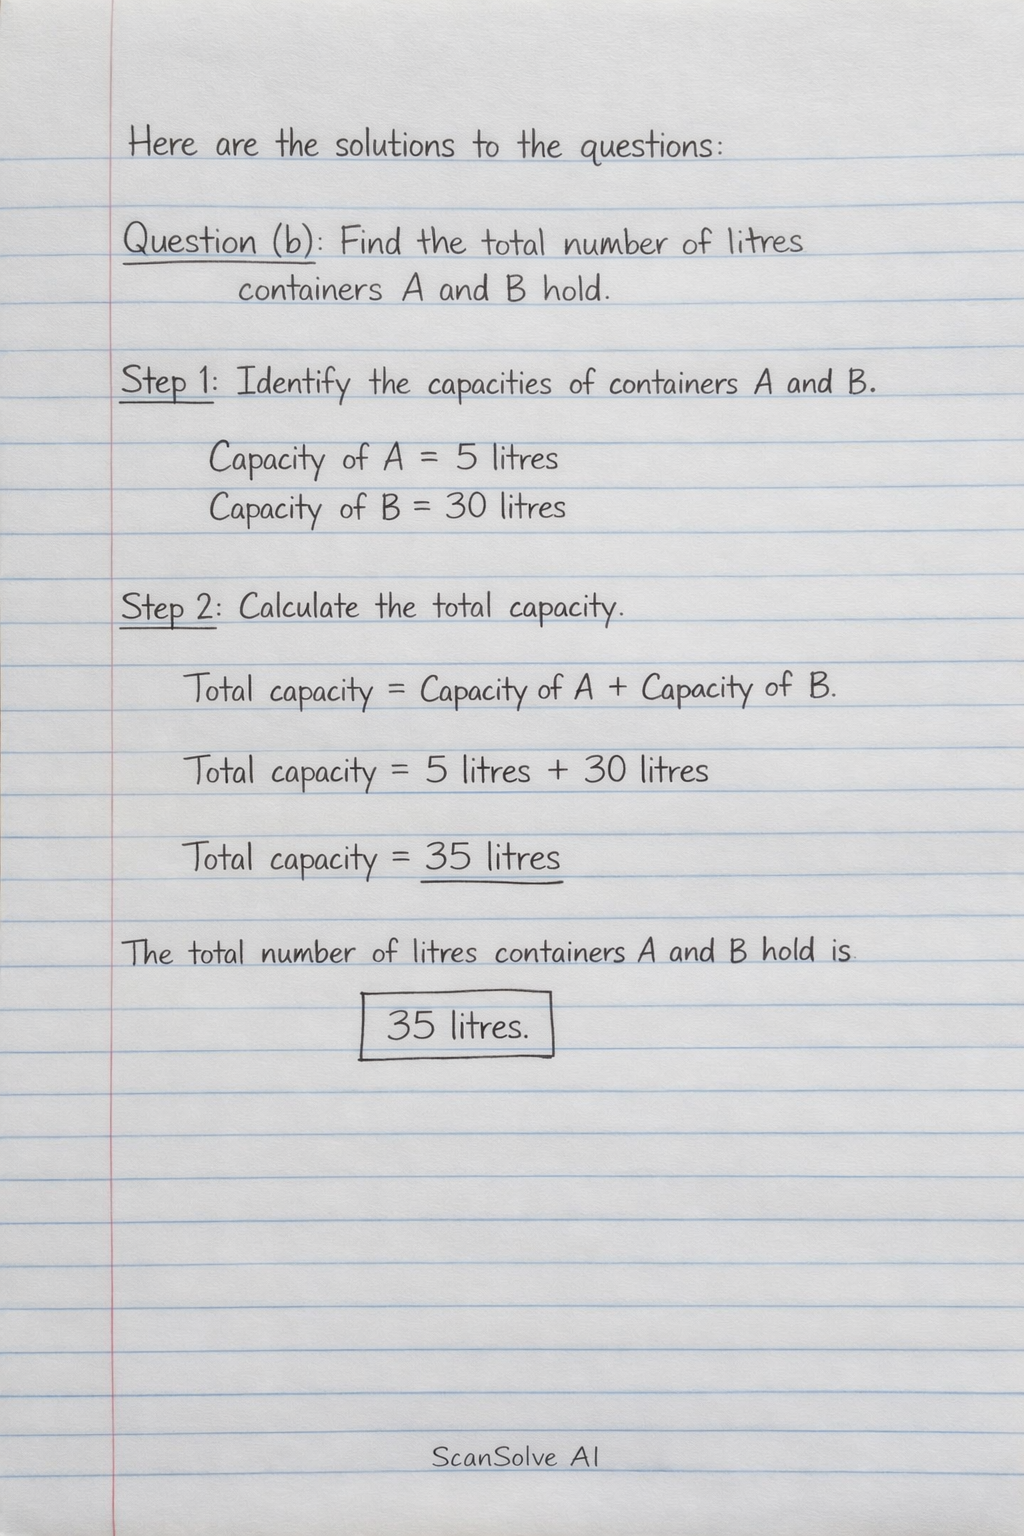 Here are the solutions to the questions:
Question (b): Find the total number of litres
containers A and B hold.
Step 1: Identify the capacities of containers A and B.
Capacity of A = 5 litres
Capacity of B = 30 litres
Step 2: Calculate the total capacity.
Total capacity = Capacity of A + Capacity of B.
Total capacity = 5 litres + 30 litres
Total capacity = 35 litres
The total number of litres containers A and B hold is
35 litres.
ScanSolve AI